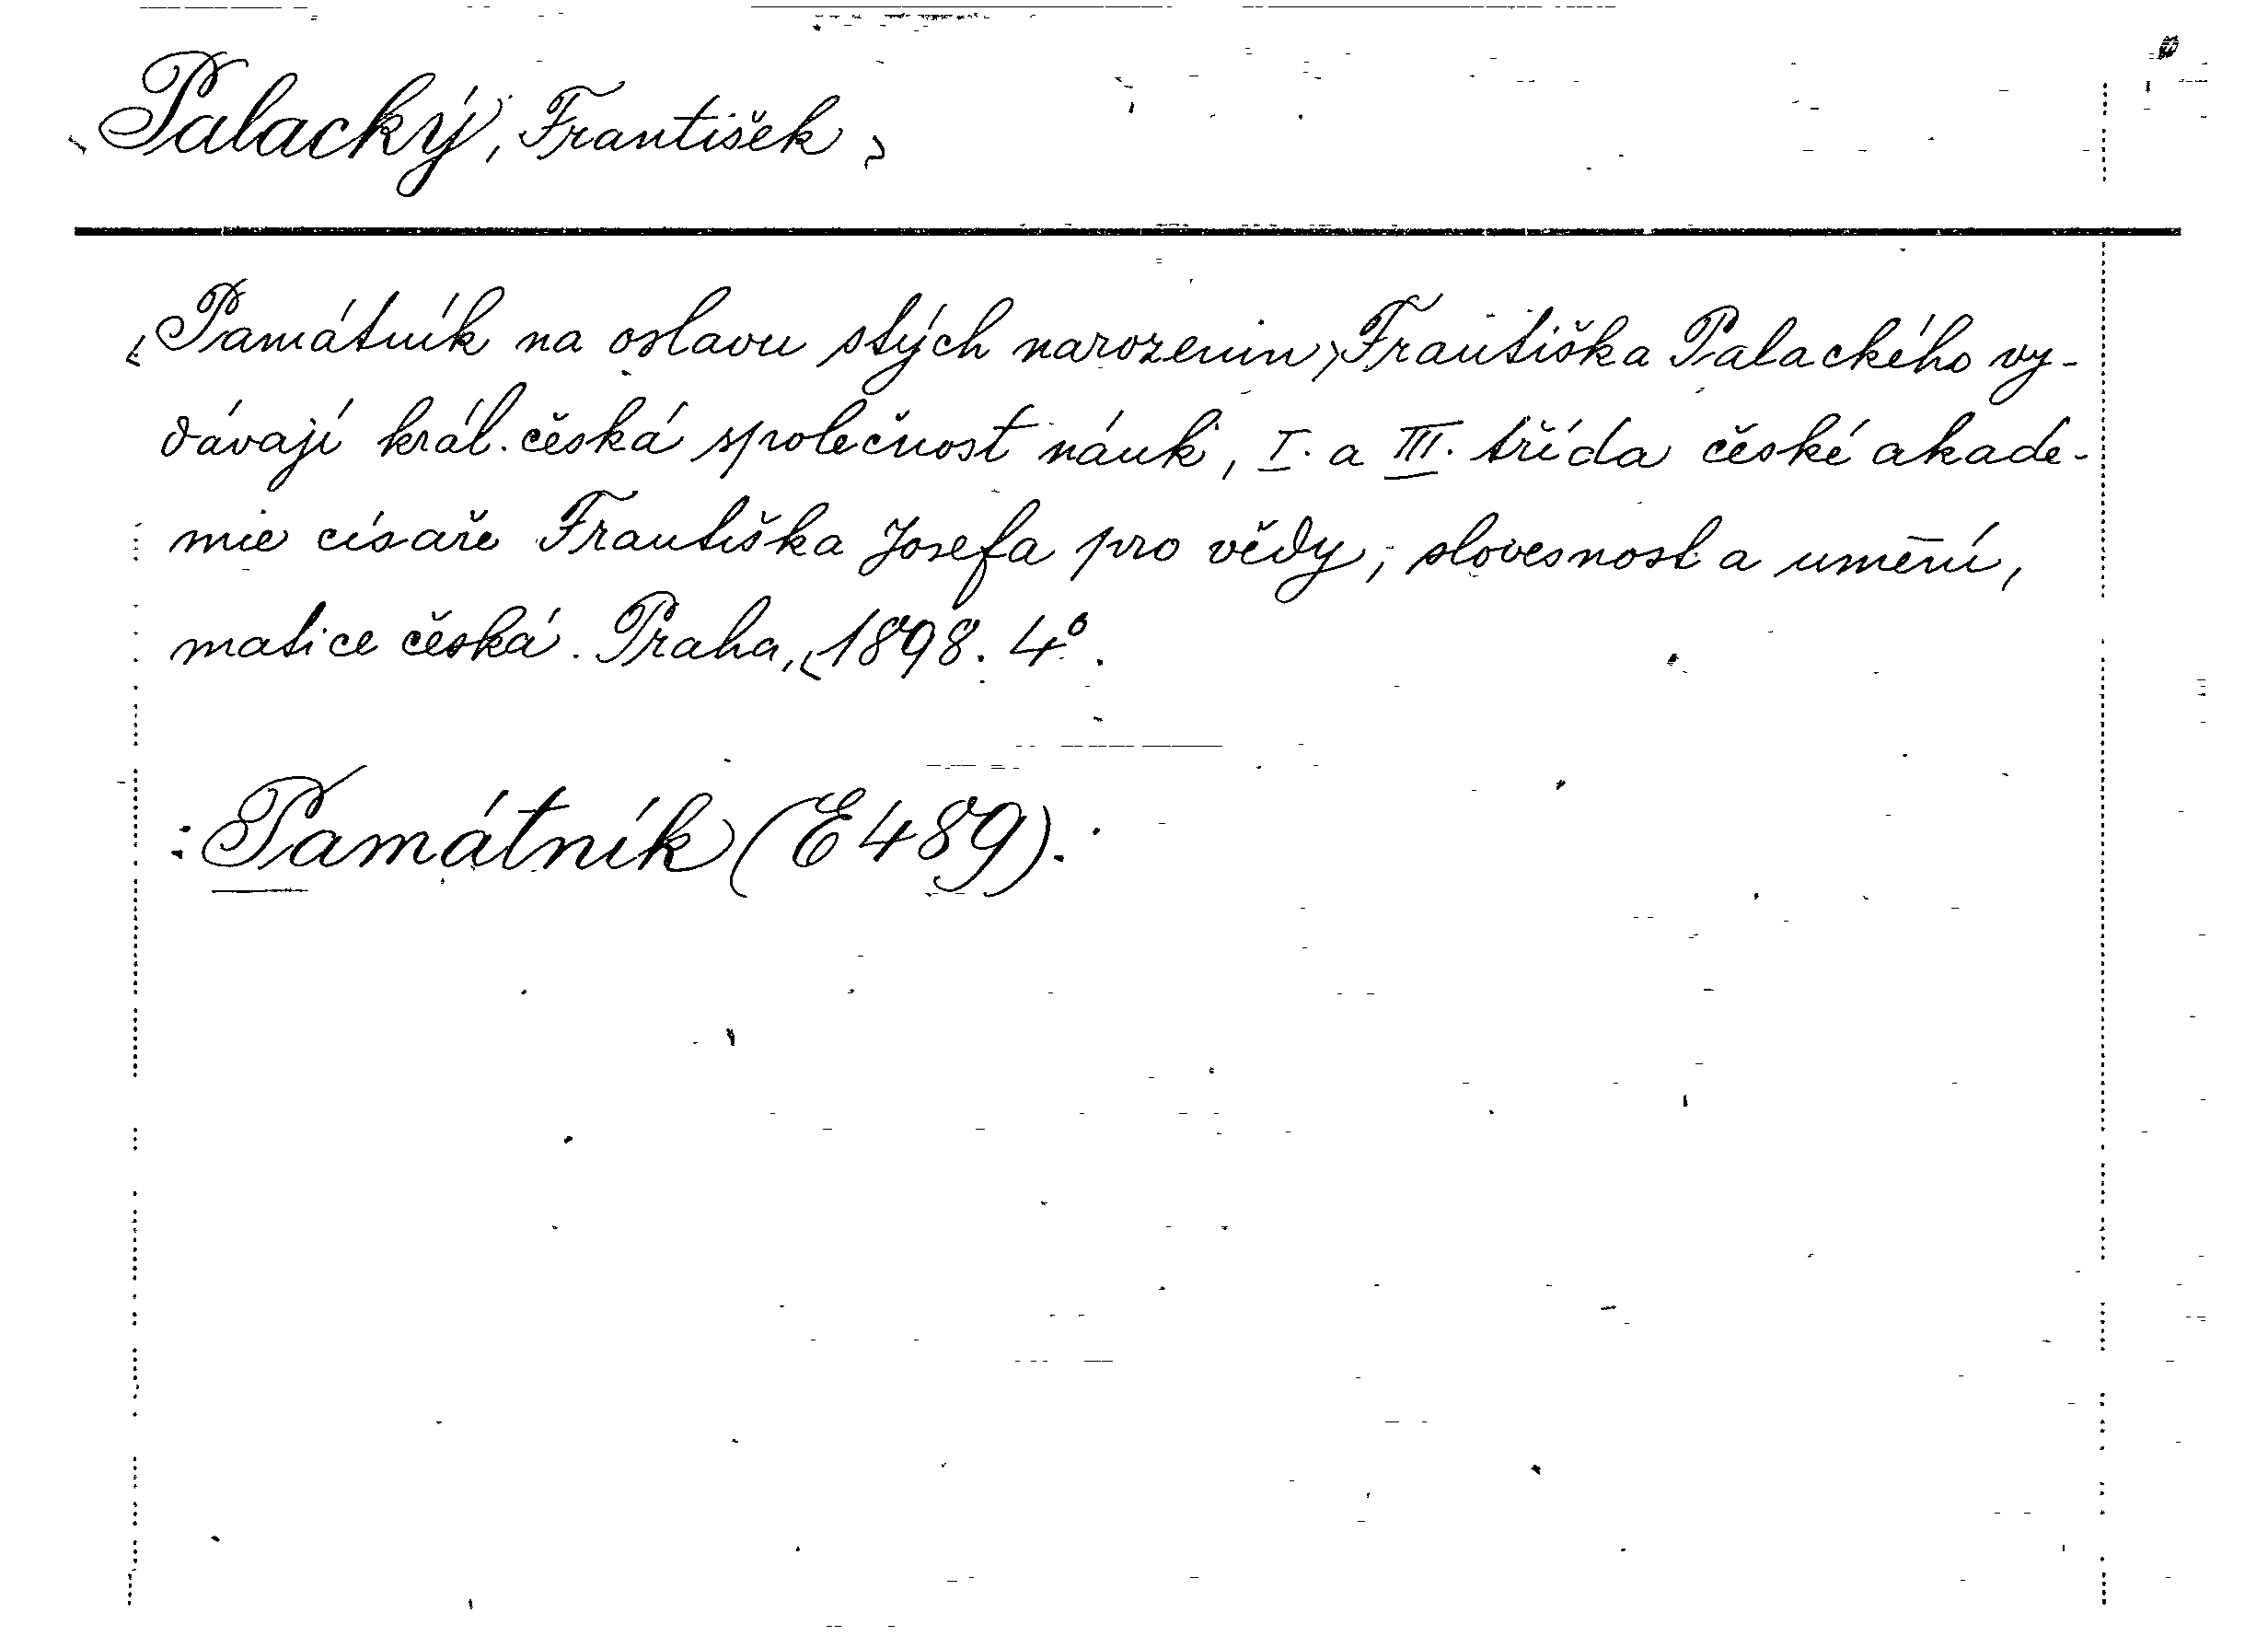 Palacký, František
Památník na oslavu stých narozenin Františka Palackého vy-
dávají král. česká společnost náuk, I. a III. třída české akade-
mie císaře Františka Josefa pro vědy, slovesnost a umění,
matice česká. Praha, 1898. 4°.
: Památník (E 489).